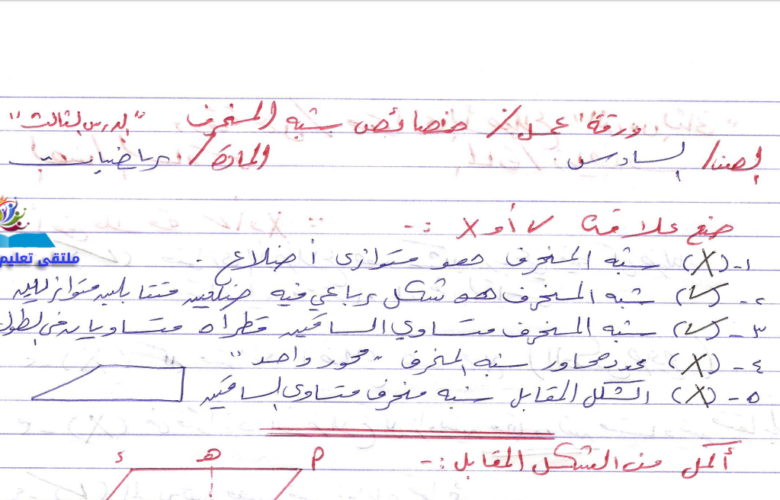 ورقة عمل / خصائص شبه المنحرف "الدرس الثالث"
الصف / السادس. المادة / رياضيات
ضع علامة √ أو X :-
ملتقى تعليم
١- (X) شبه المنحرف هو متوازي أضلاع.
٢- (√) شبه المنحرف هو شكل رباعي فيه ضلعين متقابلين متوازيين
٣- (√) شبه المنحرف متساوي الساقين قطراه متساويان في الطول
٤- (X) عدد محاور شبه المنحرف "محور واحد"
٥- (X) الشكل المقابل شبه منحرف متساوي الساقين
أكمل من الشكل المقابل :-
ء هـ P